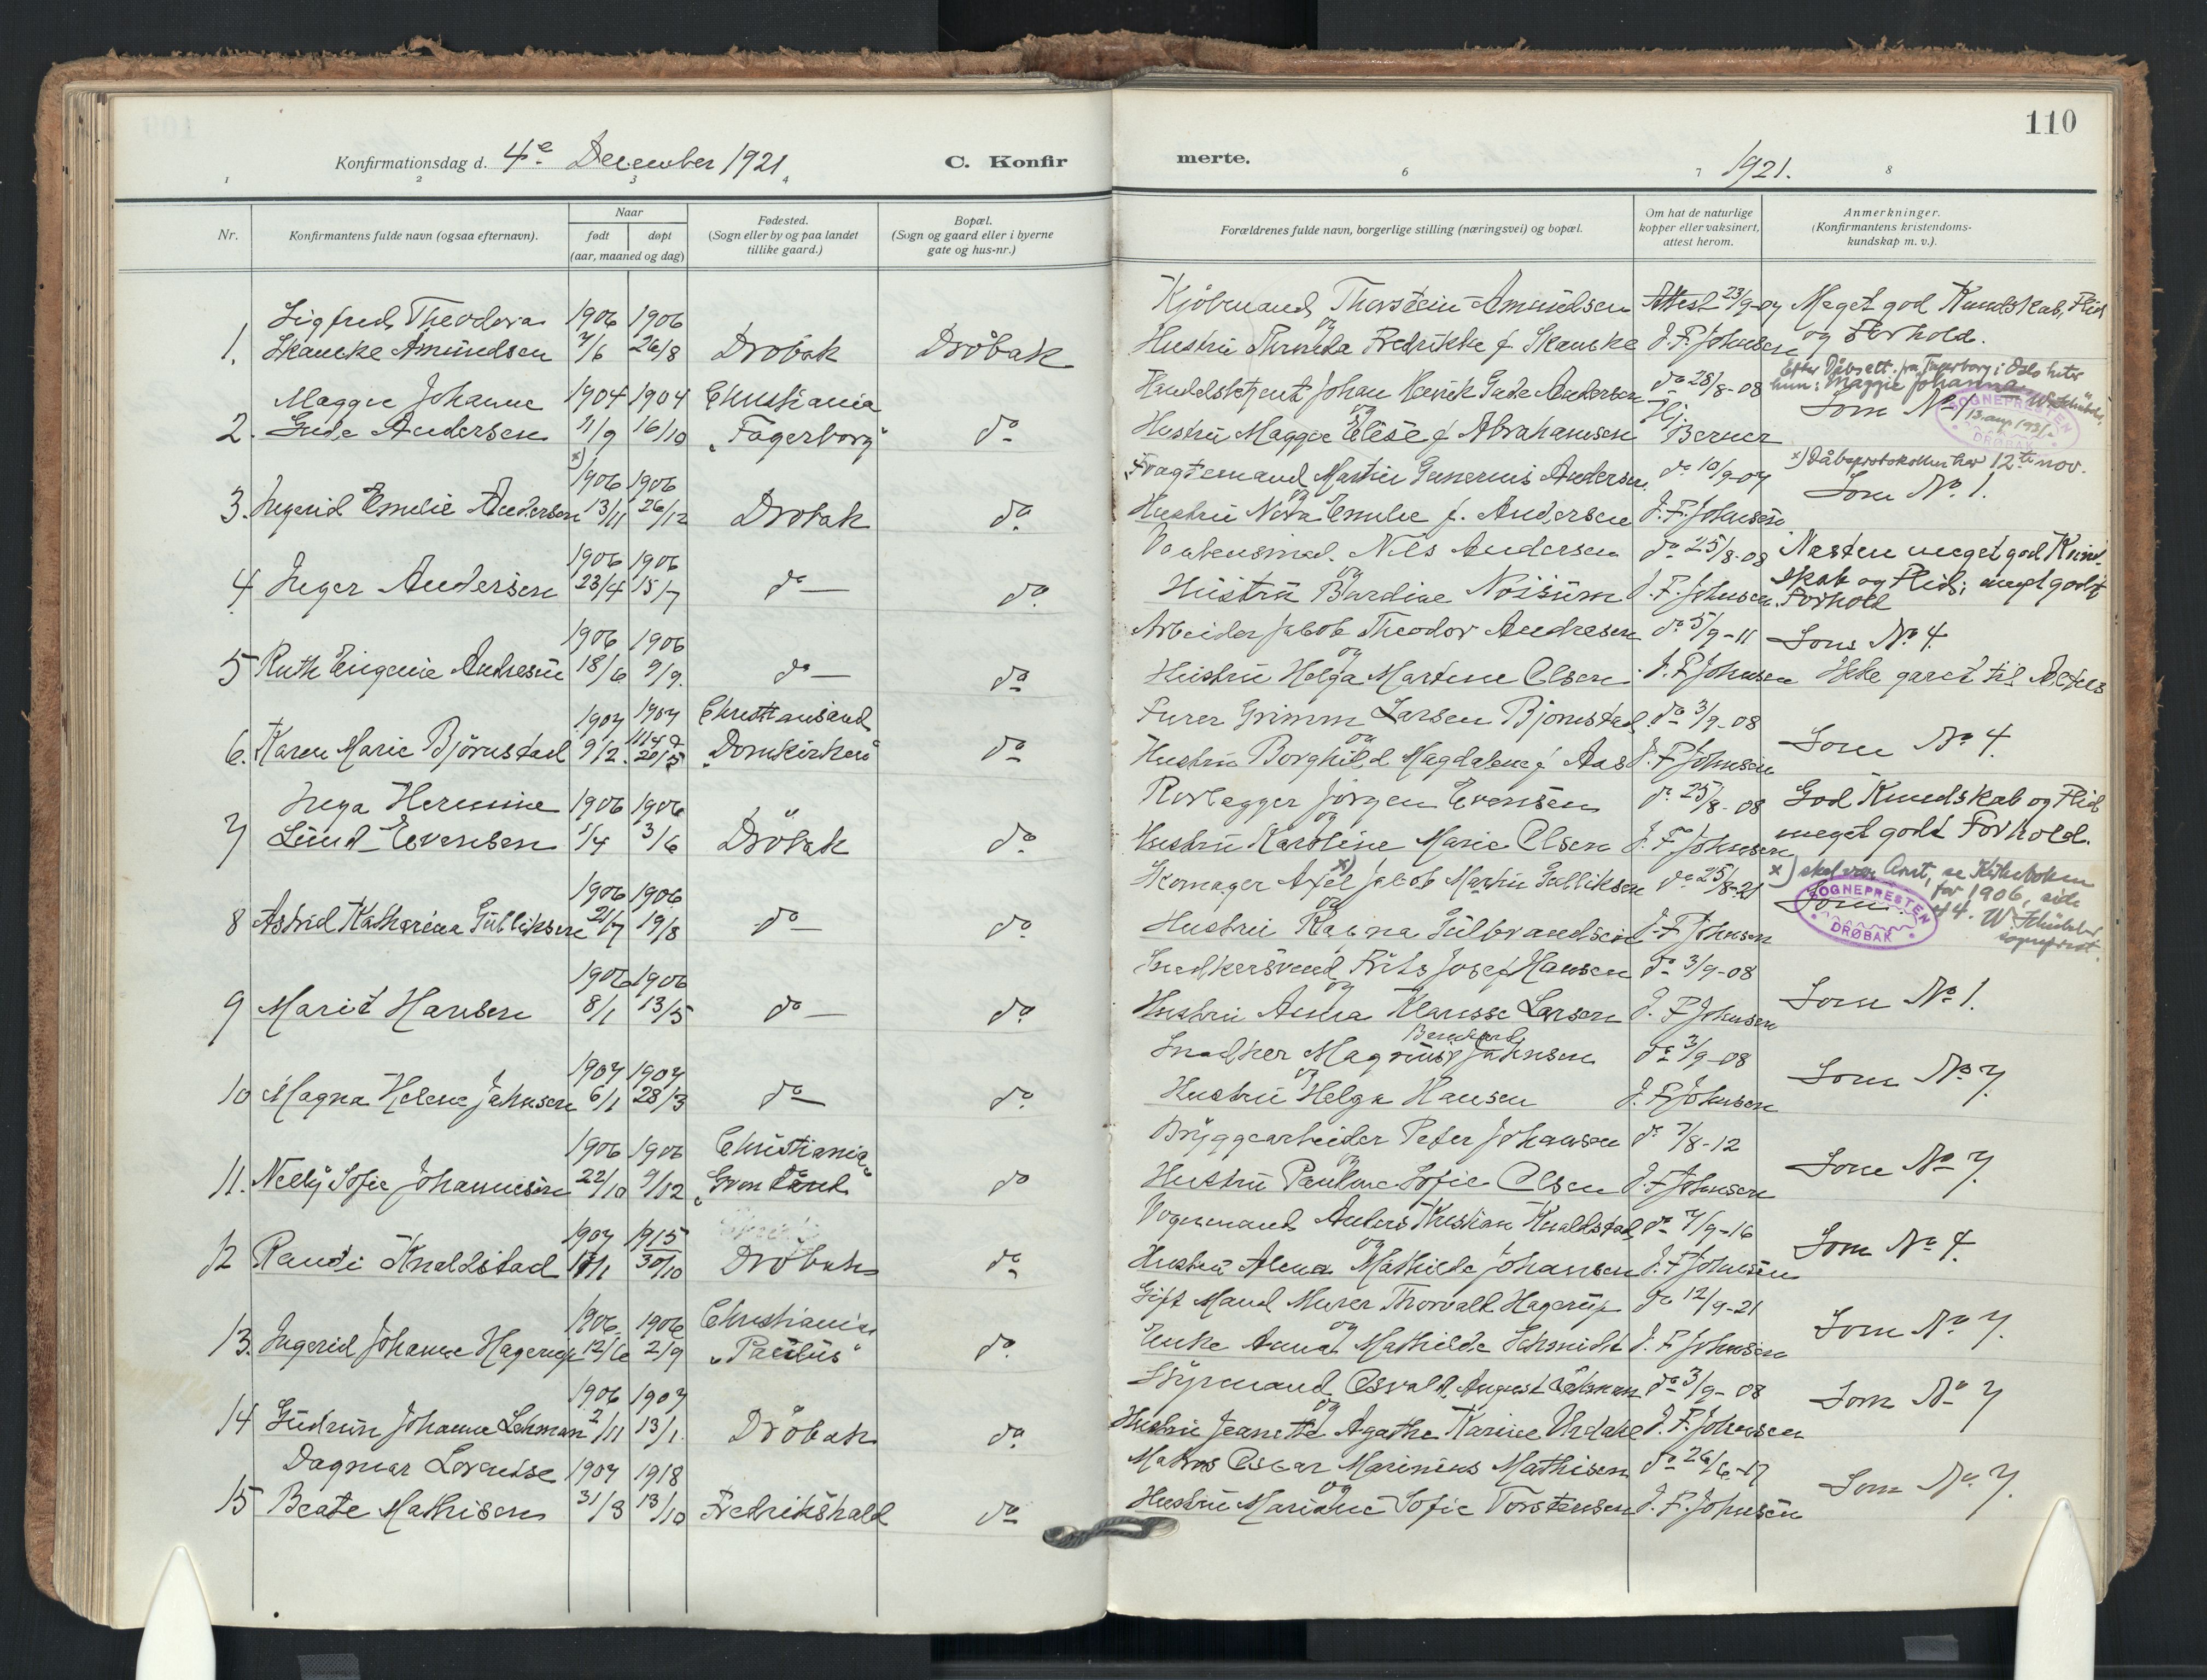 110
Konfirmationsdag d. 4e December 1921
C. Konfirmerte.
1921.
1 2 3 4 6 7 8
Nr.
Konfirmantens fulde navn (ogsaa efternavn).
Naar
født døpt
(aar, maaned og dag)
Fødested.
(Sogn eller by og paa landet
tillike gaard.)
Bopæl.
(Sogn og gaard eller i byerne
gate og hus-nr.)
Forældrenes fulde navn, borgerlige stilling (næringsvei) og bopæl.
Om hat de naturlige
kopper eller vaksinert,
attest herom.
Anmerkninger.
(Konfirmantens kristendoms-
kundskap m. v.).
Sigfred Theodora 1906 1906 Kjöbmand Thorstein Amundsen Attest 23/9-07 Meget god Kundskab, Flid
1. Skancke Amundsen 7/6 26/8 Dröbak Dröbak og Hustru Fredrikke f. Skancke J. F. Johnsen og Forhold.
Maggie Johanne 1904 1904 Christiania Handelsagent Johan Henrik Gude Andersen do 28/8-08 Efter Dåbsatt. fra Fagerborg i Oslo heter
hun: Maggie Johanna
2. Gude Andersen 11/9 16/10 "Fagerborg" do og Hustru Maggie Elise f. Abrahamsen Hj. Berner Som No 1
SOGNEPRESTEN DRØBAK
13 aug 1931
x)
x) Dåbsprotokollen har 12te nov.
1906 1906 Fragtemand Martin Gunerius Andersen do 10/9-07
3. Ingerid Emilie Andersen 13/11 26/12 Drobak do og Hustru Nora Emilie f. Andersen J. F. Johnsen Som No 1.
1906 1906 Nils Andersen do 25/8-08 Næsten meget god Kund-
4. Inger Andersen 23/4 15/7 do do og Hustru Bardine J. F. Johnsen skab og Flid; meget godt
Forhold
1906 1906 Arbeider Jakob Theodor Andresen do 5/9-11 Som No 4.
5 Ruth Eugenie Andresen 18/6 9/9. do do og Hustru Helga Martine Olsen J. F. Johnsen Ikke gaaet til Alters
1907 1907 Christiansand Furer Grimm Larsen Bjornstad do 3/9-08
6. Karen Marie Björnstad 9/2. 20/5 "Domkirken" do og Hustru Borghild Magdalene f Aas J. F. Johnsen Som No 4.
Inga Hermine 1906 1906 Rørlegger Jörgen Evensen do 25/8-08 God Kundskab og Flid
7 Lund Evensen 1/4 3/6 Dröbak do og Hustru Karoline Marie Olsen J. F. Johnsen meget godt Forhold.
1906 1906 Skomager Axel x) Jakob Martin Gulliksen do 25/8-21 x) skal være Arnt, se Kirkeboken
for 1906, side
44. W.
sogneprest.
8 Astrid Katharina Gulliksen 21/7 19/8 do do og Hustru Ragna Gulbrandsen J. F. Johnsen Som
SOGNEPRESTEN DRØBAK
1906 1906 Snedkersvend Frits Josef Hansen do 3/9-08
9 Marit Hansen 8/1 13/5 do do og Hustru Anna Klarisse Larsen J. F. Johnsen Som No 1.
1907 1907 Snedker Magnus Bernhard Jahnsen do 3/9-08
10 Magna Helene Jahnsen 6/1 28/3 do do og Hustru Helga Hansen J. F. Johnsen Som No 7.
1906 1906 Christiania Bryggearbeider Peter Johansen do 7/8-12
11. Nelly Sofie Johannesen 22/10 9/12 "Grønland" do og Hustru Pauline Sofie Olsen J. F. Johnsen Som No 7.
1907 1915 Vognmand Anders Kristian Knaldstad do 7/9-16
12 Randi Knaldstad 17/1 30/10 Dröbak do og Hustru Alma Mathilde Johansen J. F. Johnsen Som No 4.
1906 1906 Christiania Gift Mand Murer Thorvald Hagerup do 12/9-21
13. Ingerid Johanne Hagerup 12/6 2/9 "Paulus" do og Enke Anna Mathilde Schmidt J. F. Johnsen Som No 7.
1906 1907 Styrmand Osvald August Lehman do 3/9-08
14 Gudrun Johanne Lehman 2/11 13/1. Dröbak do og Hustru Jeanette Agathe Karine Urdahl J. F. Johnsen Som No 7
Dagmar Lovise 1907 1918 Matros Oscar Marinius Mathisen do 26/6-17
15 Beate Mathisen 31/3 13/10 Fredrikshald do og Hustru Mariane Sofie Torstensen J. F. Johnsen Som No 7.